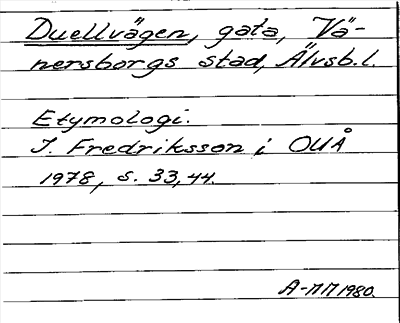 Duellvägen, gata, Vä-
nersborgs stad, Älvsb.l.
Etymologi.
I. Fredriksson i OUÅ
1978, s. 33, 44.
A-MM 1980.